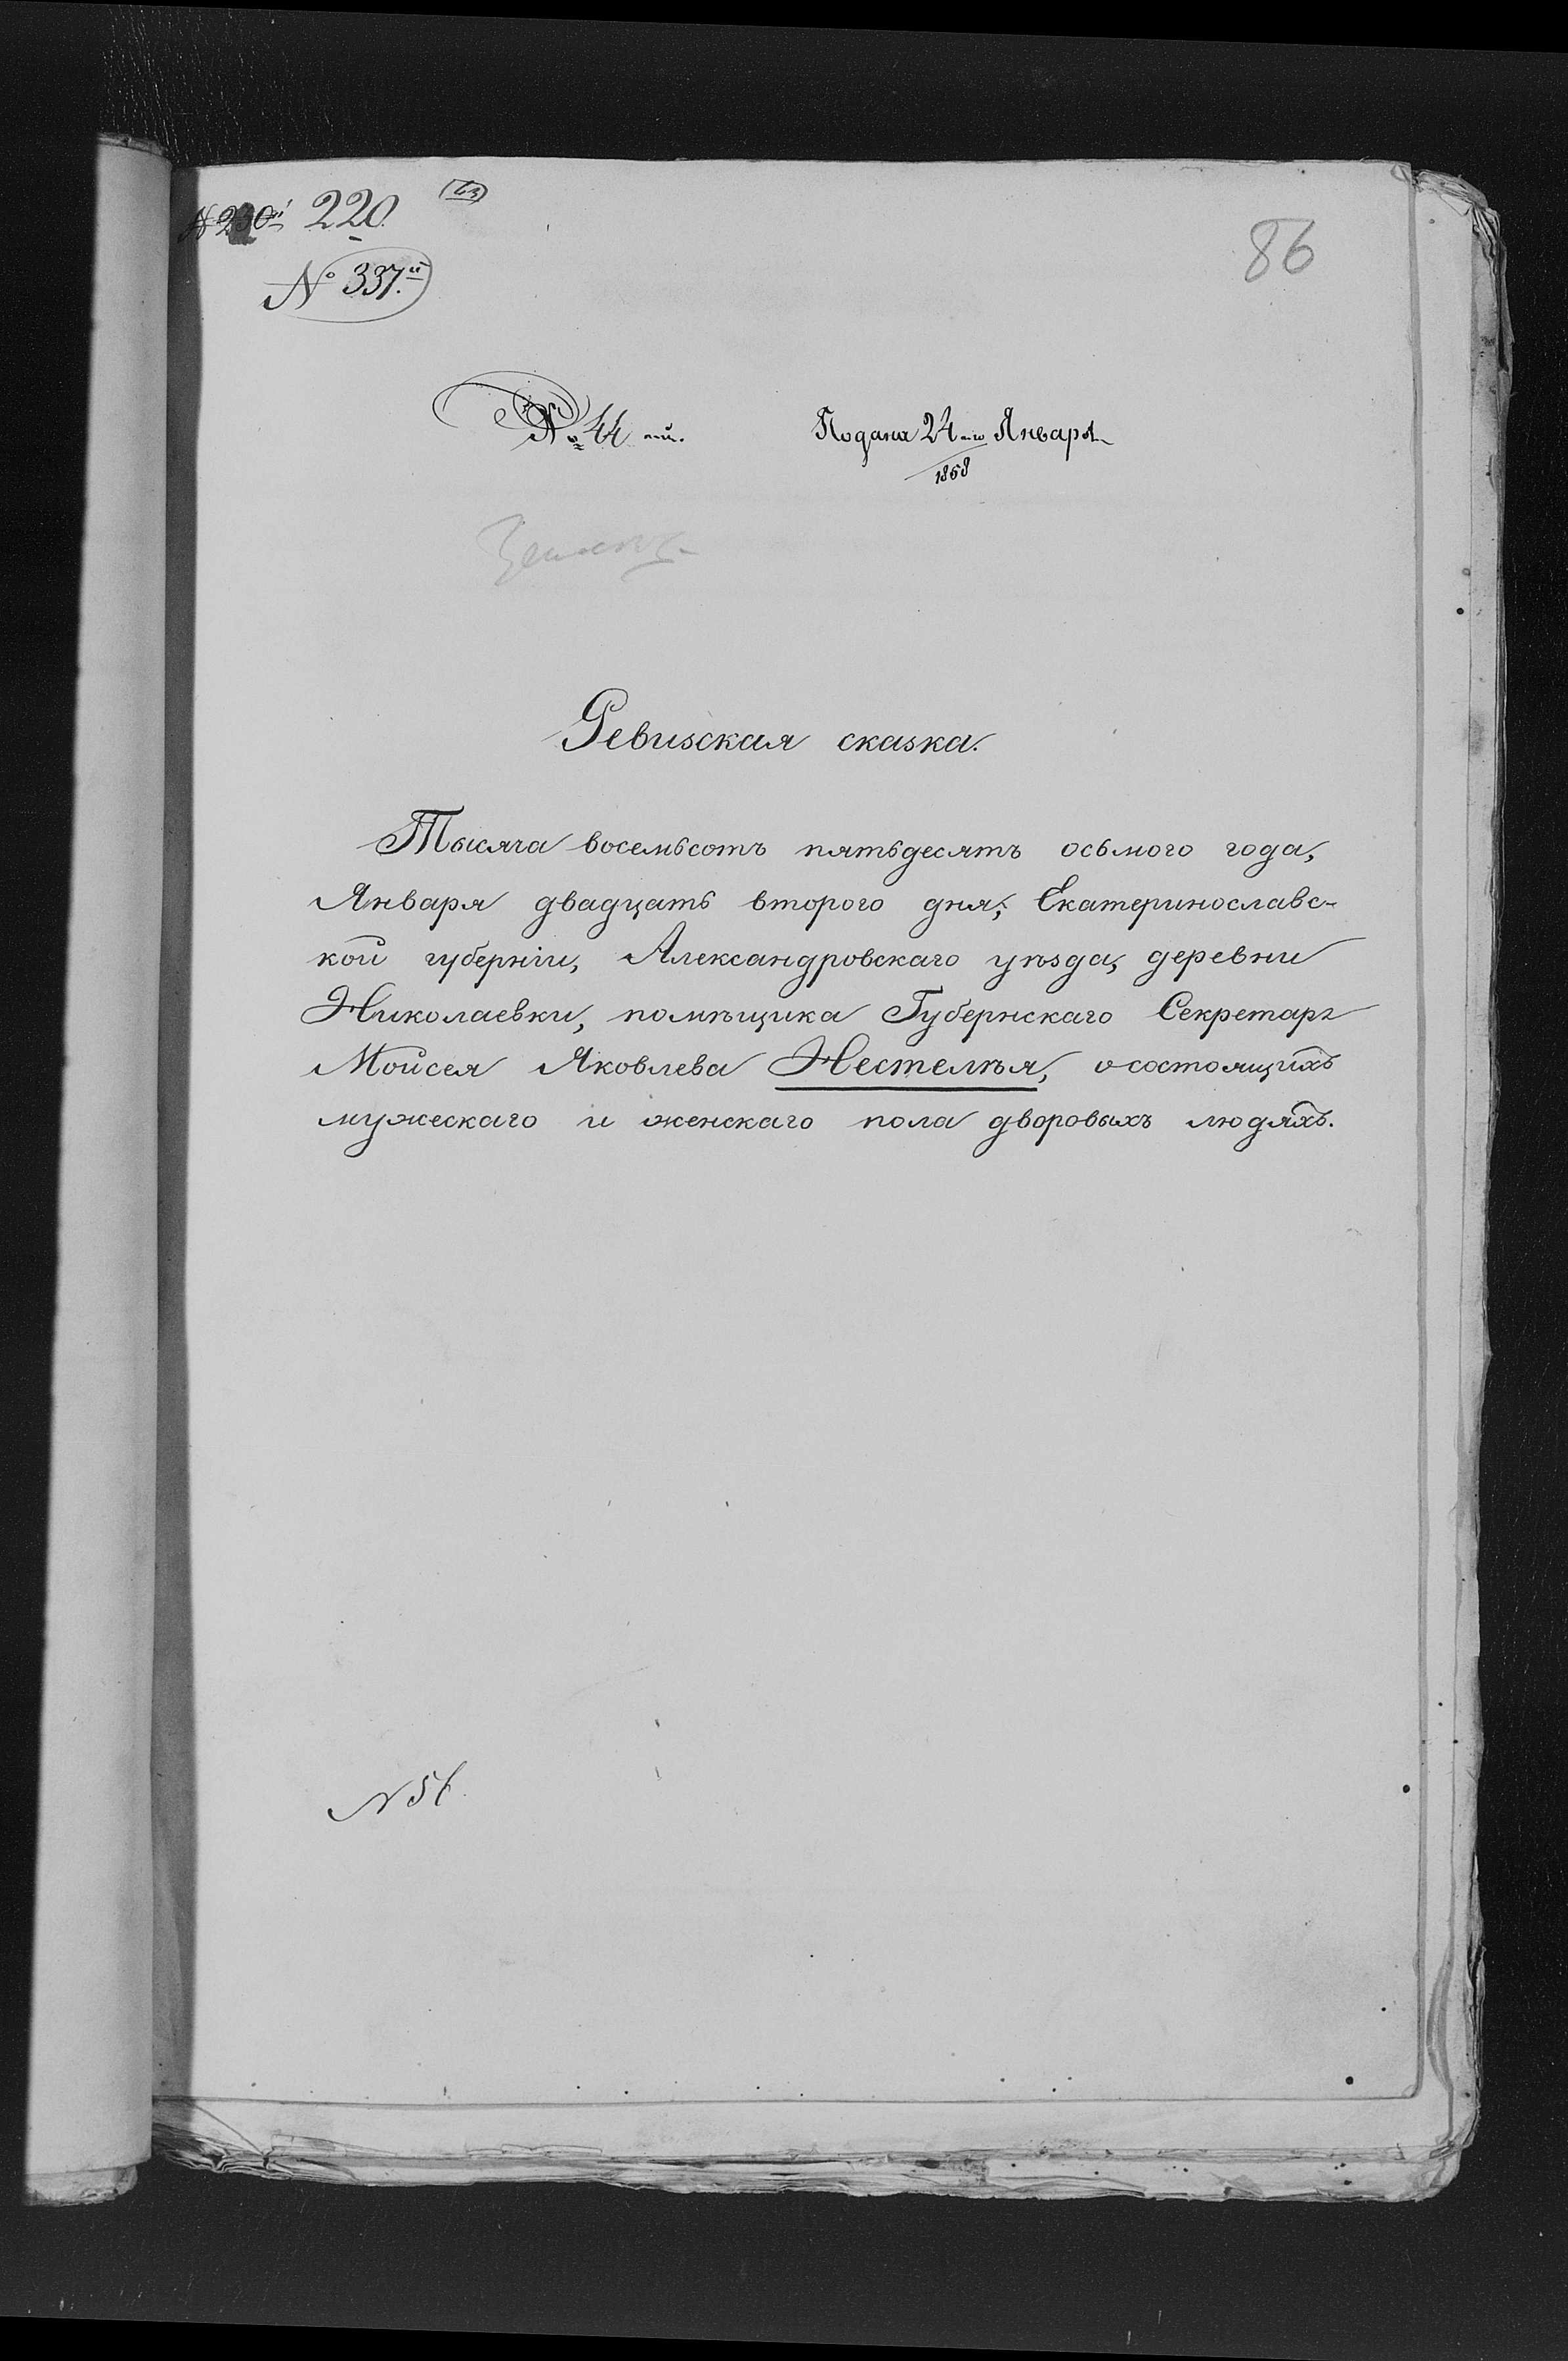 № 230й 220.
86
№ 337.й
№ 44 -й.
Подана 24-го Января
1858
Ревизская сказка.
Тысяча восемьсотъ пятьдесятъ осьмого года,
Января двадцать второго дня, Екатеринославс-
кой губерніи, Александровскаго уѣзда, деревни
Николаевки, помѣщика Губернскаго Секретаря
Моисея Яковлева Нестелѣя, о состоящихъ
мужескаго и женскаго пола дворовыхъ людяхъ.